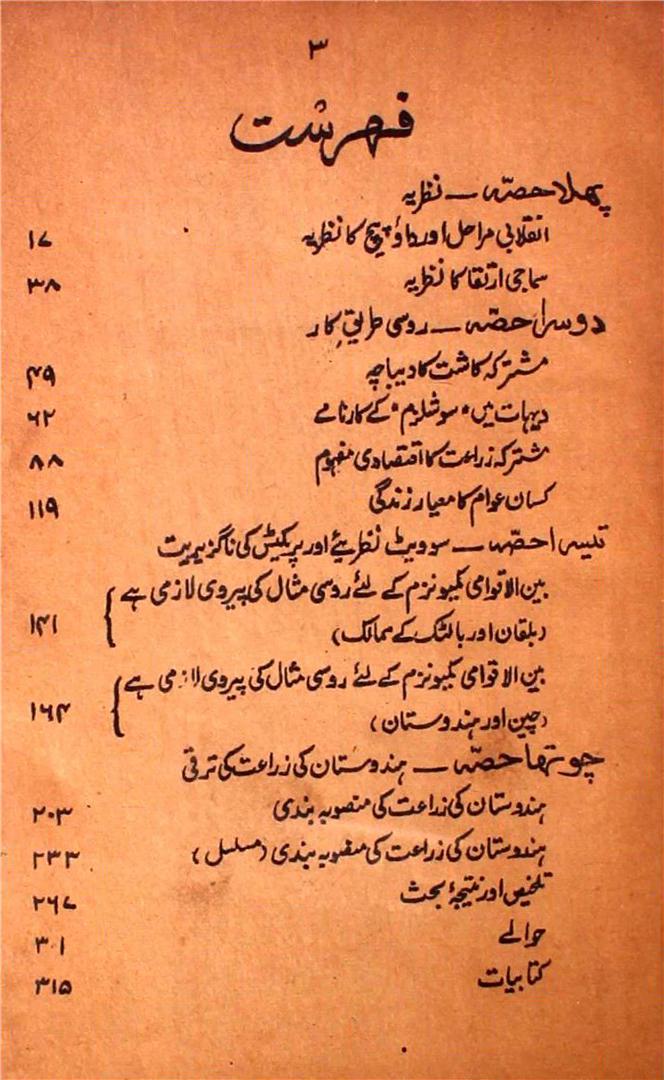 ۳
فہرست
پہلا حصّہ — نظریہ
انقلابی مراحل اور داؤ پیچ کا نظریہ ۱۷
سماجی ارتقا کا نظریہ ۳۸
دوسرا حصّہ — روسی طریقِ کار
مشترکہ کاشت کا دیباچہ ۴۹
دیہات میں "سوشلزم" کے کارنامے ۶۲
مشترکہ زراعت کا اقتصادی مفہوم ۸۸
کسان عوام کا معیار زندگی ۱۱۹
تیسرا حصّہ — سوویٹ نظریئے اور پریکٹس کی ناگزیریت
بین الاقوامی کمیونزم کے لئے روسی مثال کی پیروی لازمی ہے
(بلقان اور بالٹک کے ممالک) ۱۴۱
بین الاقوامی کمیونزم کے لئے روسی مثال کی پیروی لازمی ہے
(چین اور ہندوستان) ۱۶۴
چوتھا حصّہ — ہندوستان کی زراعت کی ترقی
ہندوستان کی زراعت کی منصوبہ بندی ۲۰۳
ہندوستان کی زراعت کی منصوبہ بندی (مسلسل) ۲۳۳
تلخیص اور نتیجۂ بحث ۲۶۷
حوالے ۳۰۱
کتابیات ۳۱۵